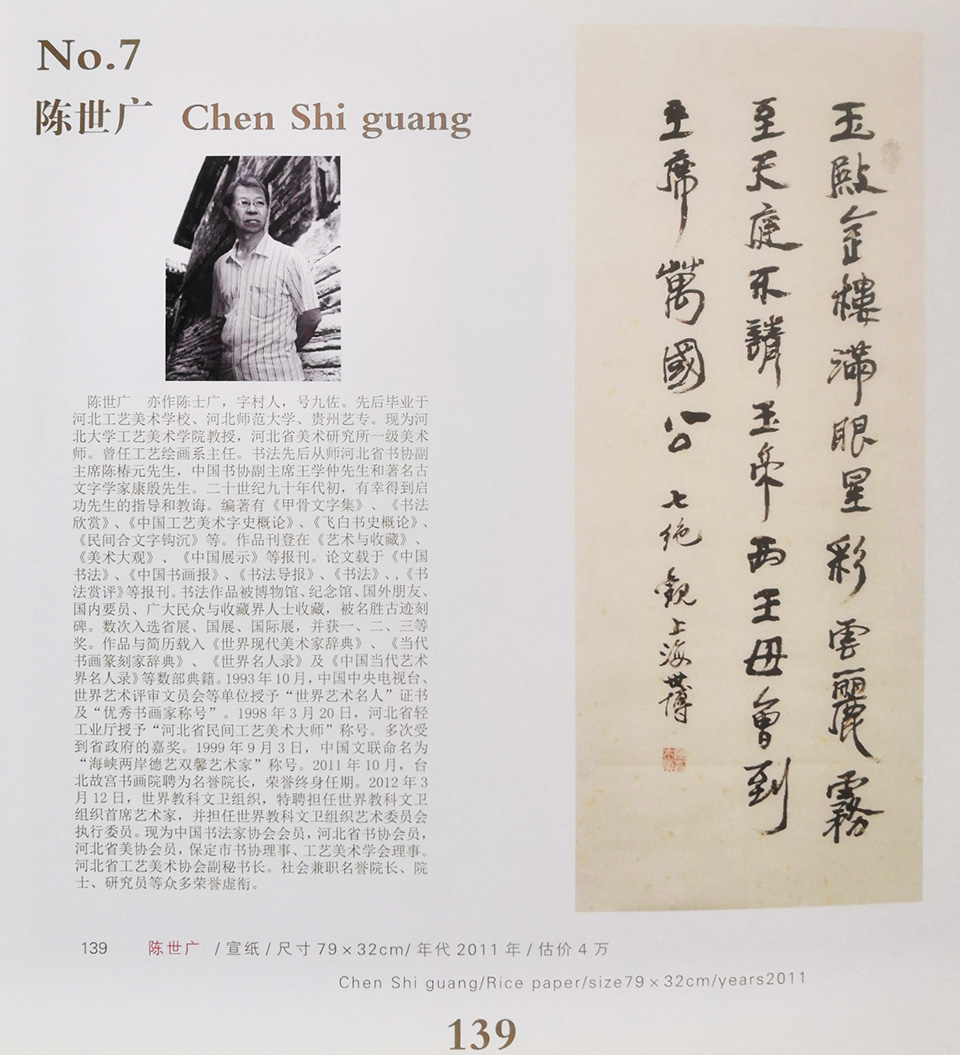 No.7
陈世广 Chen Shi guang
陈世广 亦作陈士广，字村人，号九佐。先后毕业于
河北工艺美术学校、河北师范大学、贵州艺专。现为河
北大学工艺美术学院教授，河北省美术研究所一级美术
师。曾任工艺绘画系主任。书法先后从师河北省书协副
主席陈椿元先生，中国书协副主席王学仲先生和著名古
文字学家康殷先生。二十世纪九十年代初，有幸得到启
功先生的指导和教诲。编著有《甲骨文字集》、《书法
欣赏》、《中国工艺美术字史概论》、《飞白书史概论》、
《民间合文字钩沉》等。作品刊登在《艺术与收藏》、
《美术大观》、《中国展示》等报刊。论文载于《中国
书法》、《中国书画报》、《书法导报》、《书法》、,《书
法赏评》等报刊。书法作品被博物馆、纪念馆、国外朋友、
国内要员、广大民众与收藏界人士收藏，被名胜古迹刻
碑。数次入选省展、国展、国际展，并获一、二、三等
奖。作品与简历载入《世界现代美术家辞典》、《当代
书画篆刻家辞典》、《世界名人录》及《中国当代艺术
界名人录》等数部典籍。1993年10月，中国中央电视台、
世界艺术评审文员会等单位授予“世界艺术名人”证书
及“优秀书画家称号”。1998年3月20日，河北省轻
工业厅授予“河北省民间工艺美术大师”称号。多次受
到省政府的嘉奖。1999年9月3日，中国文联命名为
“海峡两岸德艺双馨艺术家”称号。2011年10月，台
北故宫书画院聘为名誉院长，荣誉终身任期。2012年3
月12日，世界教科文卫组织，特聘担任世界教科文卫
组织首席艺术家，并担任世界教科文卫组织艺术委员会
执行委员。现为中国书法家协会会员，河北省书协会员，
河北省美协会员，保定市书协理事、工艺美术学会理事。
河北省工艺美术协会副秘书长。社会兼职名誉院长、院
士、研究员等众多荣誉虚衔。
玉殿金樓滿眼星彩雲麗霧
至天庭不請玉帝西王母會到
主席萬國公 七绝 觀上海世博
139 陈世广 /宣纸/尺寸79×32cm/年代2011年/估价4万
Chen Shi guang/Rice paper/size79×32cm/years2011
139